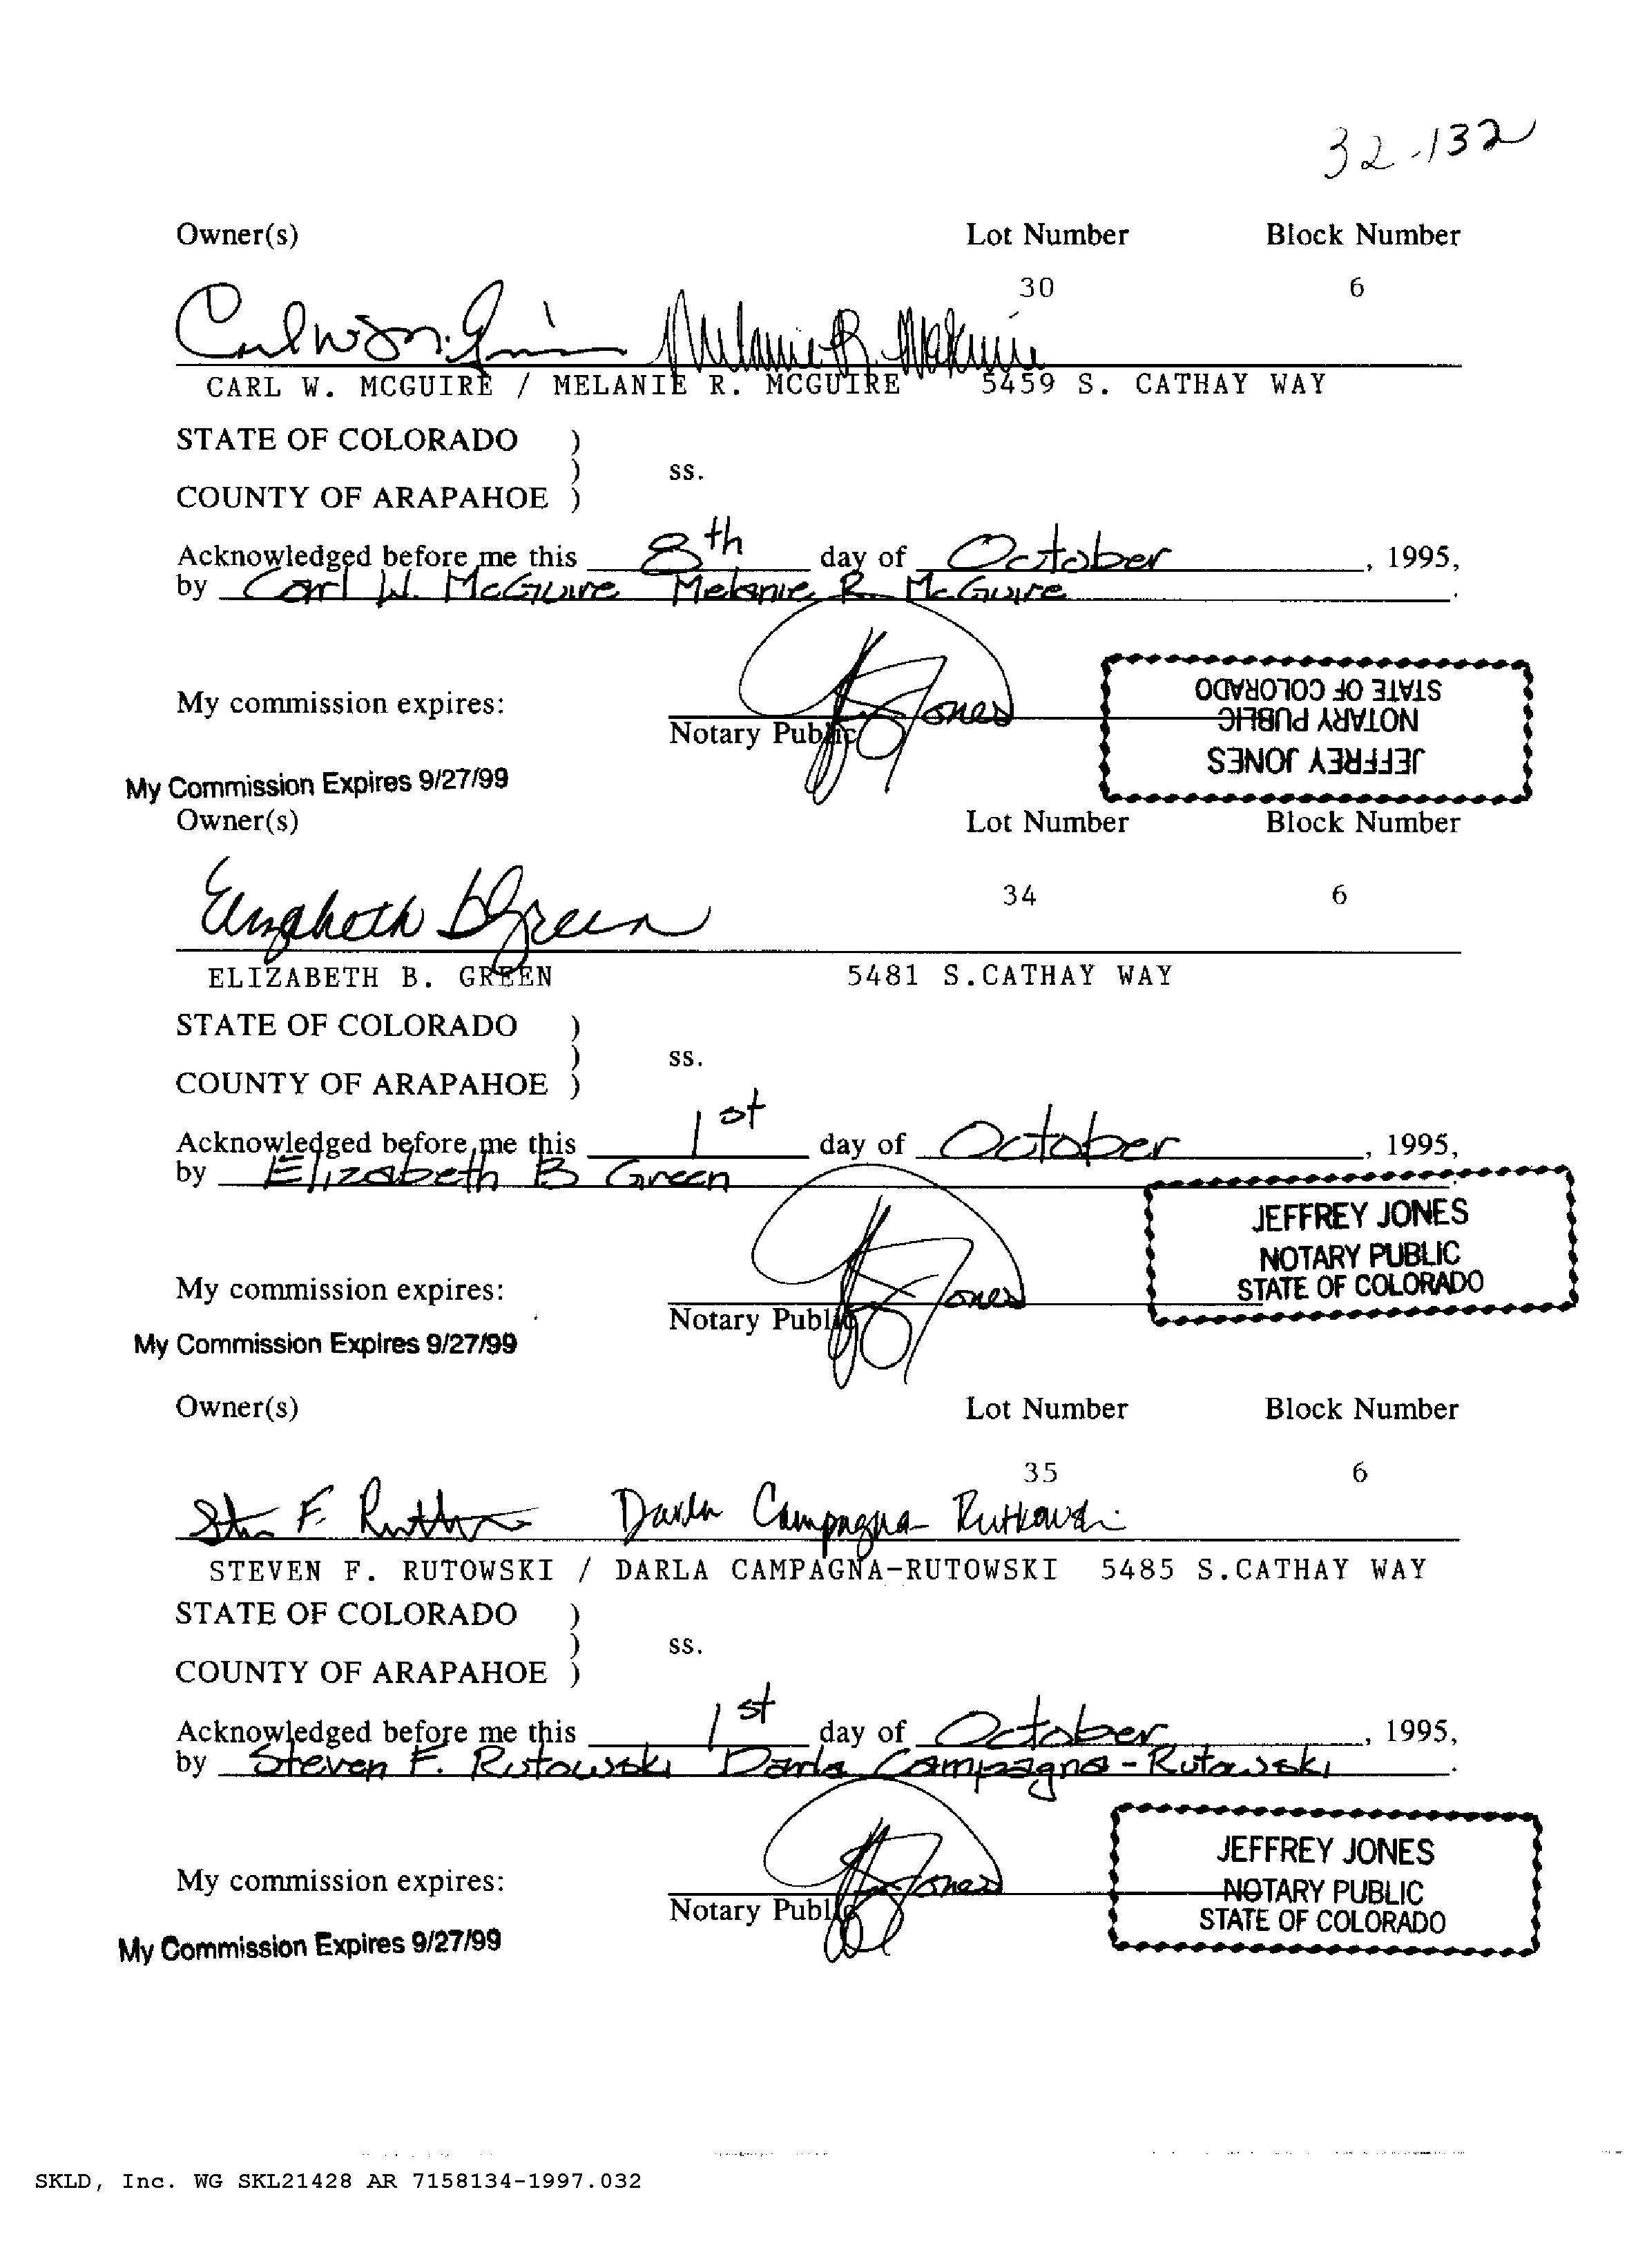 32-132
Owner(s) Lot Number Block Number
30 6
CARL W. MCGUIRE / MELANIE R. MCGUIRE 5459 S. CATHAY WAY
STATE OF COLORADO )
) ss.
COUNTY OF ARAPAHOE )
Acknowledged before me this 8th day of October, 1995,
by Carl W. McGuire Melanie R. McGuire.
STATE OF COLORADO
NOTARY PUBLIC
JEFFREY JONES
My commission expires: Jones
Notary Public
My Commission Expires 9/27/99
Owner(s) Lot Number Block Number
34 6
Elizabeth B Green
ELIZABETH B. GREEN 5481 S.CATHAY WAY
STATE OF COLORADO )
) ss.
COUNTY OF ARAPAHOE )
Acknowledged before me this 1st day of October, 1995,
by Elizabeth B Green.
JEFFREY JONES
NOTARY PUBLIC
STATE OF COLORADO
My commission expires: Jones
Notary Public
My Commission Expires 9/27/99
Owner(s) Lot Number Block Number
35 6
Darla Campagna Rutkowski
STEVEN F. RUTOWSKI / DARLA CAMPAGNA-RUTOWSKI 5485 S.CATHAY WAY
STATE OF COLORADO )
) ss.
COUNTY OF ARAPAHOE )
Acknowledged before me this 1st day of October, 1995,
by Steven F. Rutowski Darla Campagna-Rutowski.
JEFFREY JONES
NOTARY PUBLIC
STATE OF COLORADO
My commission expires: Jones
Notary Public
My Commission Expires 9/27/99
SKLD, Inc. WG SKL21428 AR 7158134-1997.032